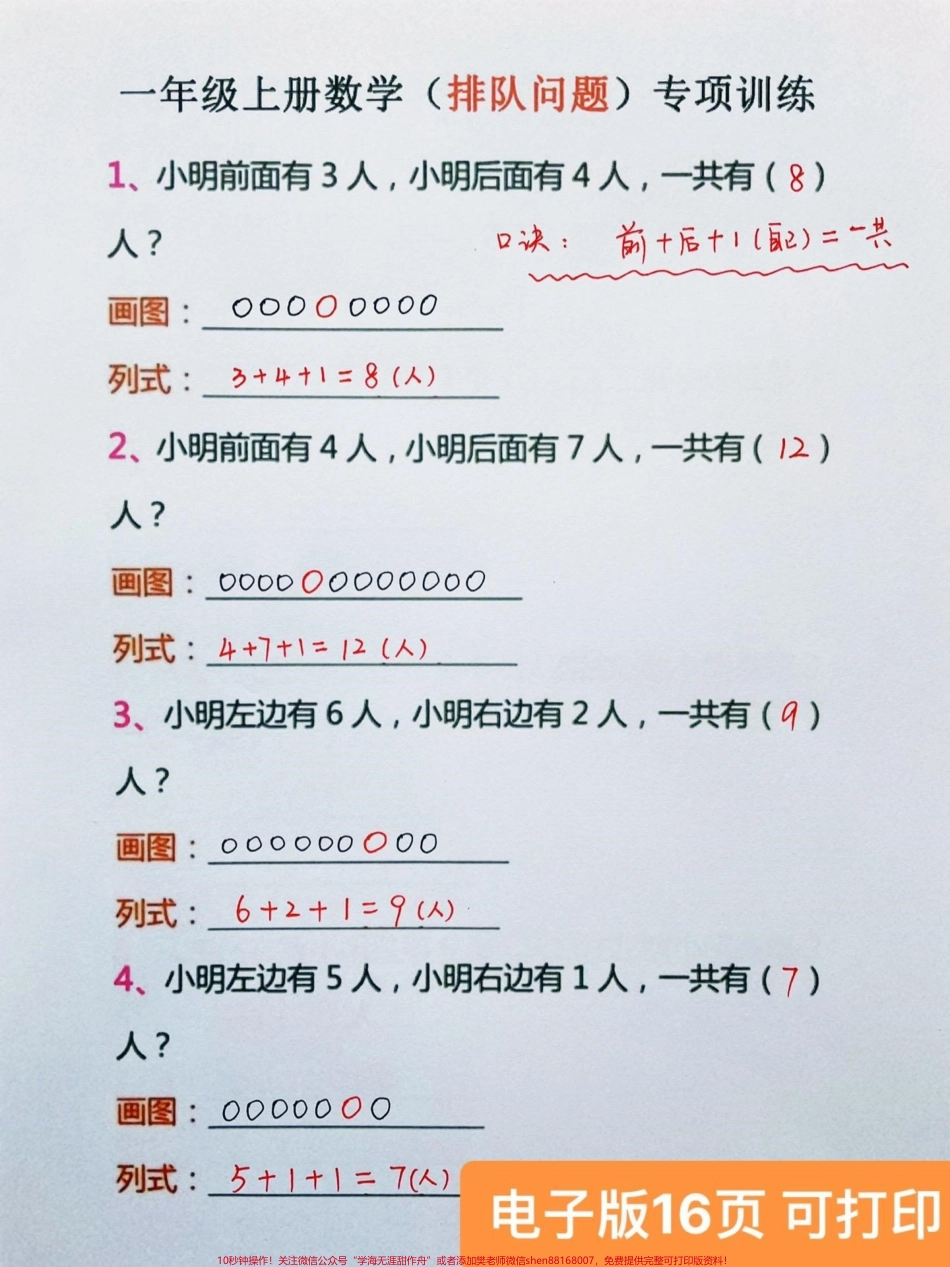 一年级上册数学（排队问题）专项训练
1、小明前面有 3 人，小明后面有 4 人，一共有（ 8 ）
人？
口诀： 前+后+1(自己)=一共
画图： ○○○○○○○○
列式： 3+4+1=8(人)
2、小明前面有 4 人，小明后面有 7 人，一共有（ 12 ）
人？
画图： ○○○○○○○○○○○○○
列式： 4+7+1=12(人)
3、小明左边有 6 人，小明右边有 2 人，一共有（ 9 ）
人？
画图： ○○○○○○○○○
列式： 6+2+1=9(人)
4、小明左边有 5 人，小明右边有 1 人，一共有（ 7 ）
人？
画图： ○○○○○○○
列式： 5+1+1=7(人)
电子版16页 可打印
10秒钟操作！关注微信公众号“学海无涯甜作舟”或者添加樊老师微信shen88168007，免费提供完整可打印版资料！